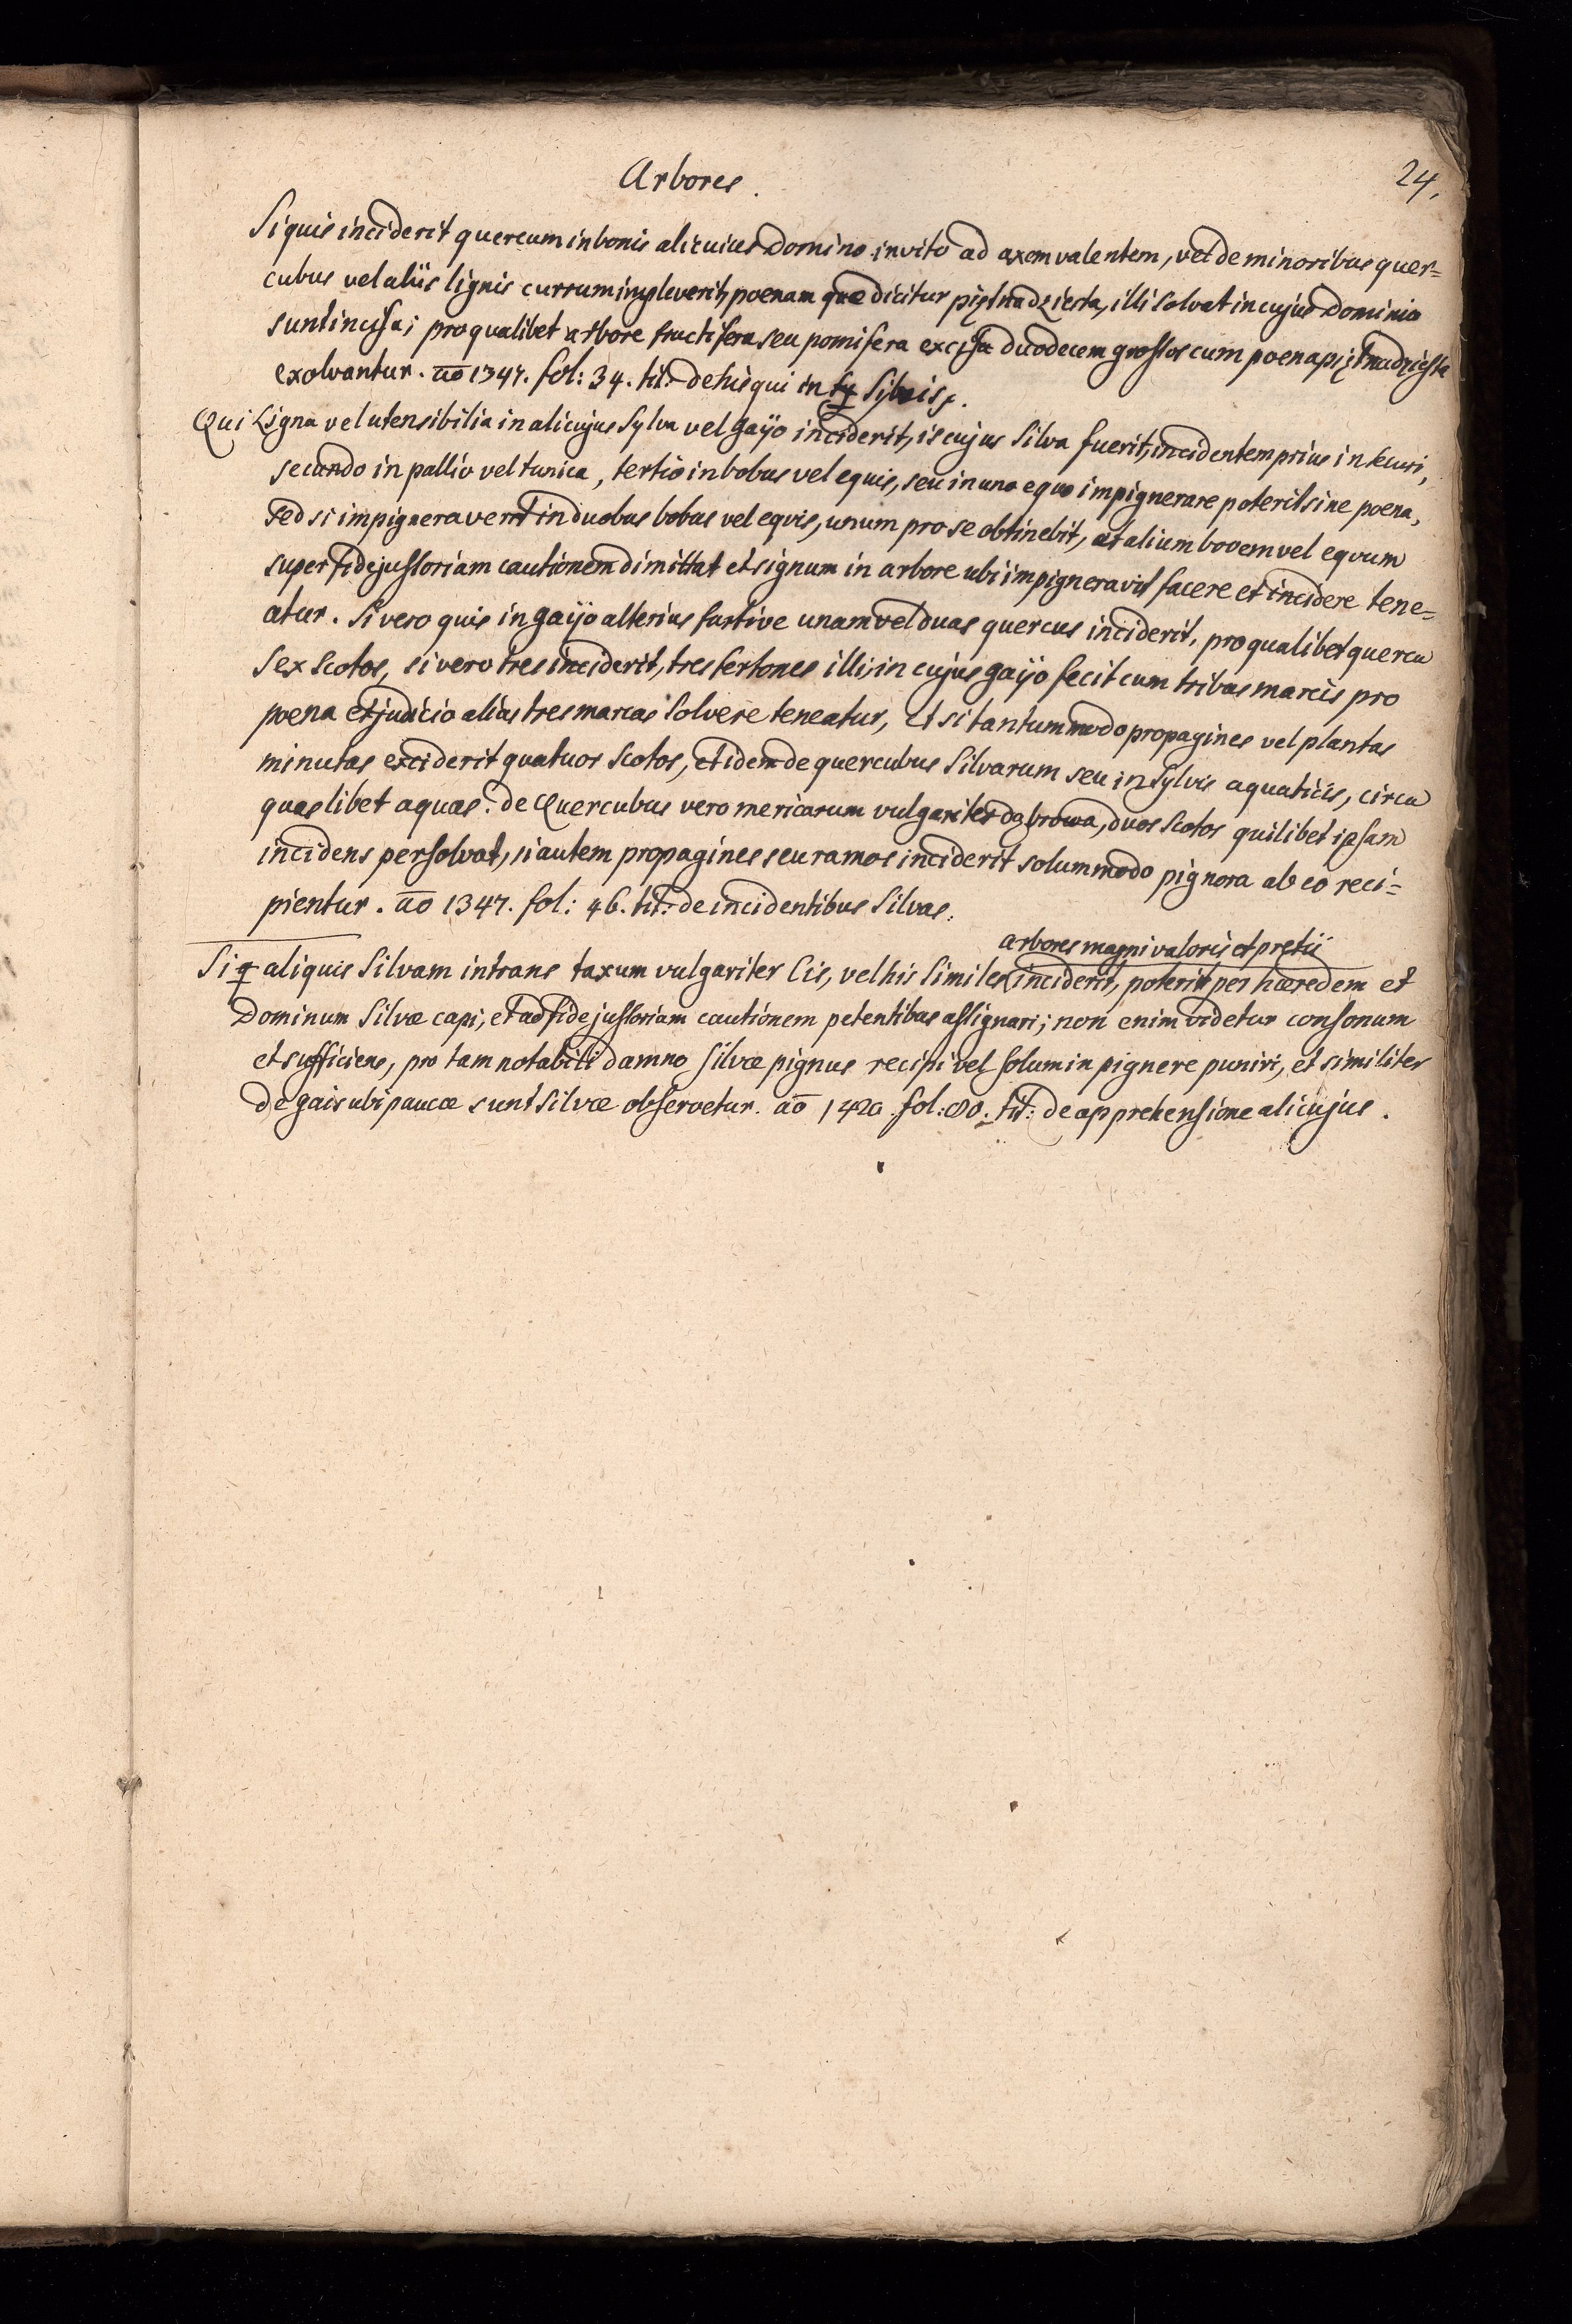 Arbores.
24.
Si quis inciderit quercum in bonis alicuius Domino invito ad axem valentem, vel de minoribus quer=
cubus vel aliis lignis currum impleverit, poenam quæ dicitur piętnadziesta, illi solvat in cujus Dominio
sunt incisa; pro qualibet arbore fructifera seu pomifera excisa duodecem grossos cum poena piętnadziesta
exolvantur. ao 1347. fol: 34. tit: de his qui in Sylvis.
Qui Ligna vel utensibilia in alicujus Sylva vel gaijo inciderit, is cujus Silva fuerit, incidentem prius in securi,
secundo in pallio vel tunica, tertio in bobus vel equis, seu in uno equo impignerare poterit sine poena,
sed si impigneraverit in duobus bobus vel eqvis, unum pro se obtinebit, at alium bovem vel eqvum
super fidejussoriam cautionem dimittat et signum in arbore ubi impigneravit facere et incidere tene=
atur. Si vero quis in gaijo alterius furtive unam vel duas quercus inciderit, pro qualibet quercu
sex Scotos, si vero tres inciderit, tres fertones illi, in cujus gaijo fecit cum tribus marcis pro
poena et judicio alias tres marcas solvere teneatur, et si tantummodo propagines vel plantas
minutas exciderit quatuor Scotos, et idem de quercubus Silvarum seu in Sylvis aquaticis, circa
quaslibet aquas. de Quercubus vero mericarum vulgariter dąbrowa, duos Scotos quilibet ipsam
incidens persolvat, si autem propagines seu ramos inciderit solummodo pignora ab eo reci=
pientur. ao 1347. fol: 46. tit: de incidentibus Silvas.
arbores magni valoris et pretii
Siq aliquis Silvam intrans taxum vulgariter Cis, vel his similes inciderit, poterit per hæredem et
Dominum Silvæ capi, et ad fidejussoriam cautionem petentibus assignari; non enim videtur consonum
et sufficiens, pro tam notabili damno Silvæ pignus recipi vel solum in pignere puniri, et similiter
de gais ubi paucæ sunt silvæ observetur. ao 1420. fol: 80. tit: de apprehensione alicujus.